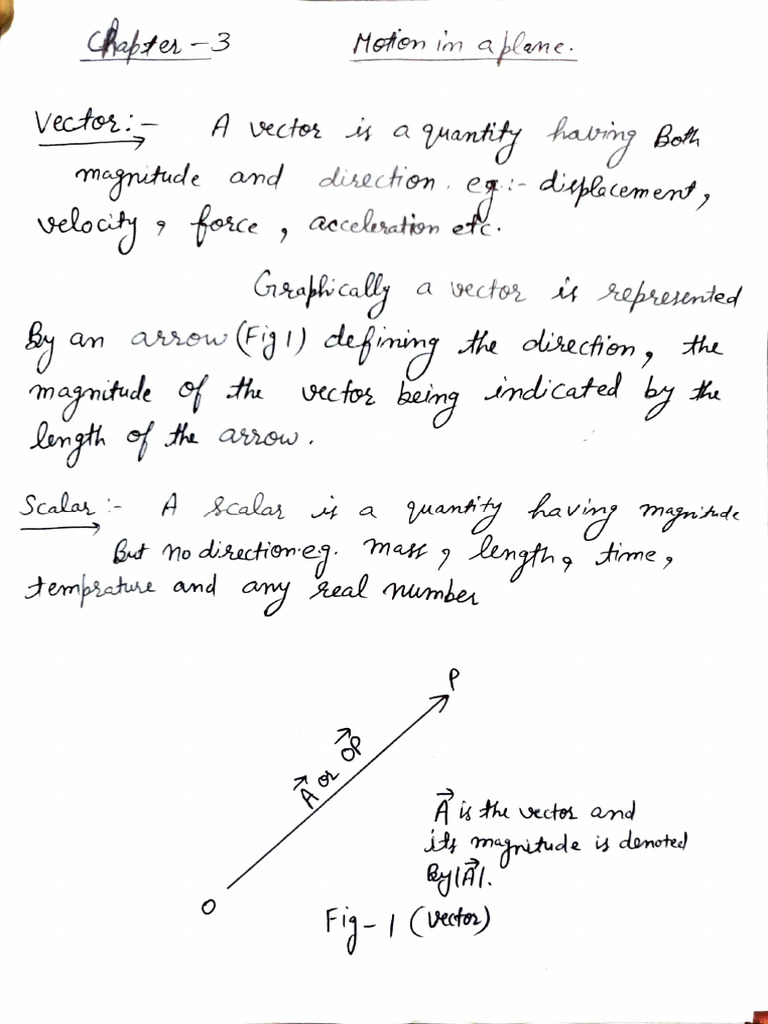 Chapter - 3 Motion in a plane.
Vector :- A vector is a quantity having Both
magnitude and direction. eg :- displacement,
velocity, force, acceleration etc.
Graphically a vector is represented
By an arrow (Fig 1) defining the direction, the
magnitude of the vector being indicated by the
length of the arrow.
Scalar :- A scalar is a quantity having magnitude
But no direction. eg. mass, length, time,
temprature and any real number
P
A⃗ or OP⃗
A⃗ is the vector and
its magnitude is denoted
By |A⃗|.
O
Fig - 1 (vector)